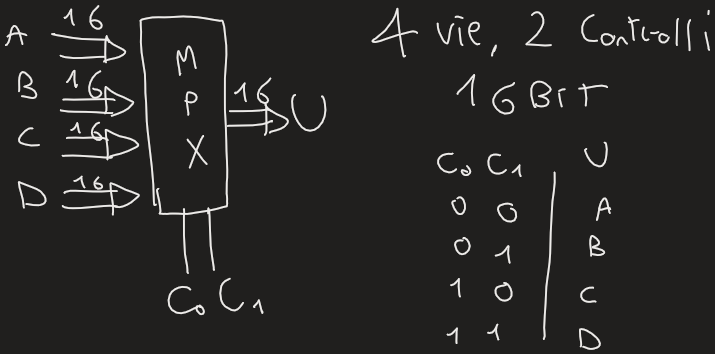 A 16
B 16
C 16
D 16
MPX
16 U
C₀ C₁
4 vie, 2 Controlli
16 Bit
C₀ C₁ U
0 0 A
0 1 B
1 0 C
1 1 D